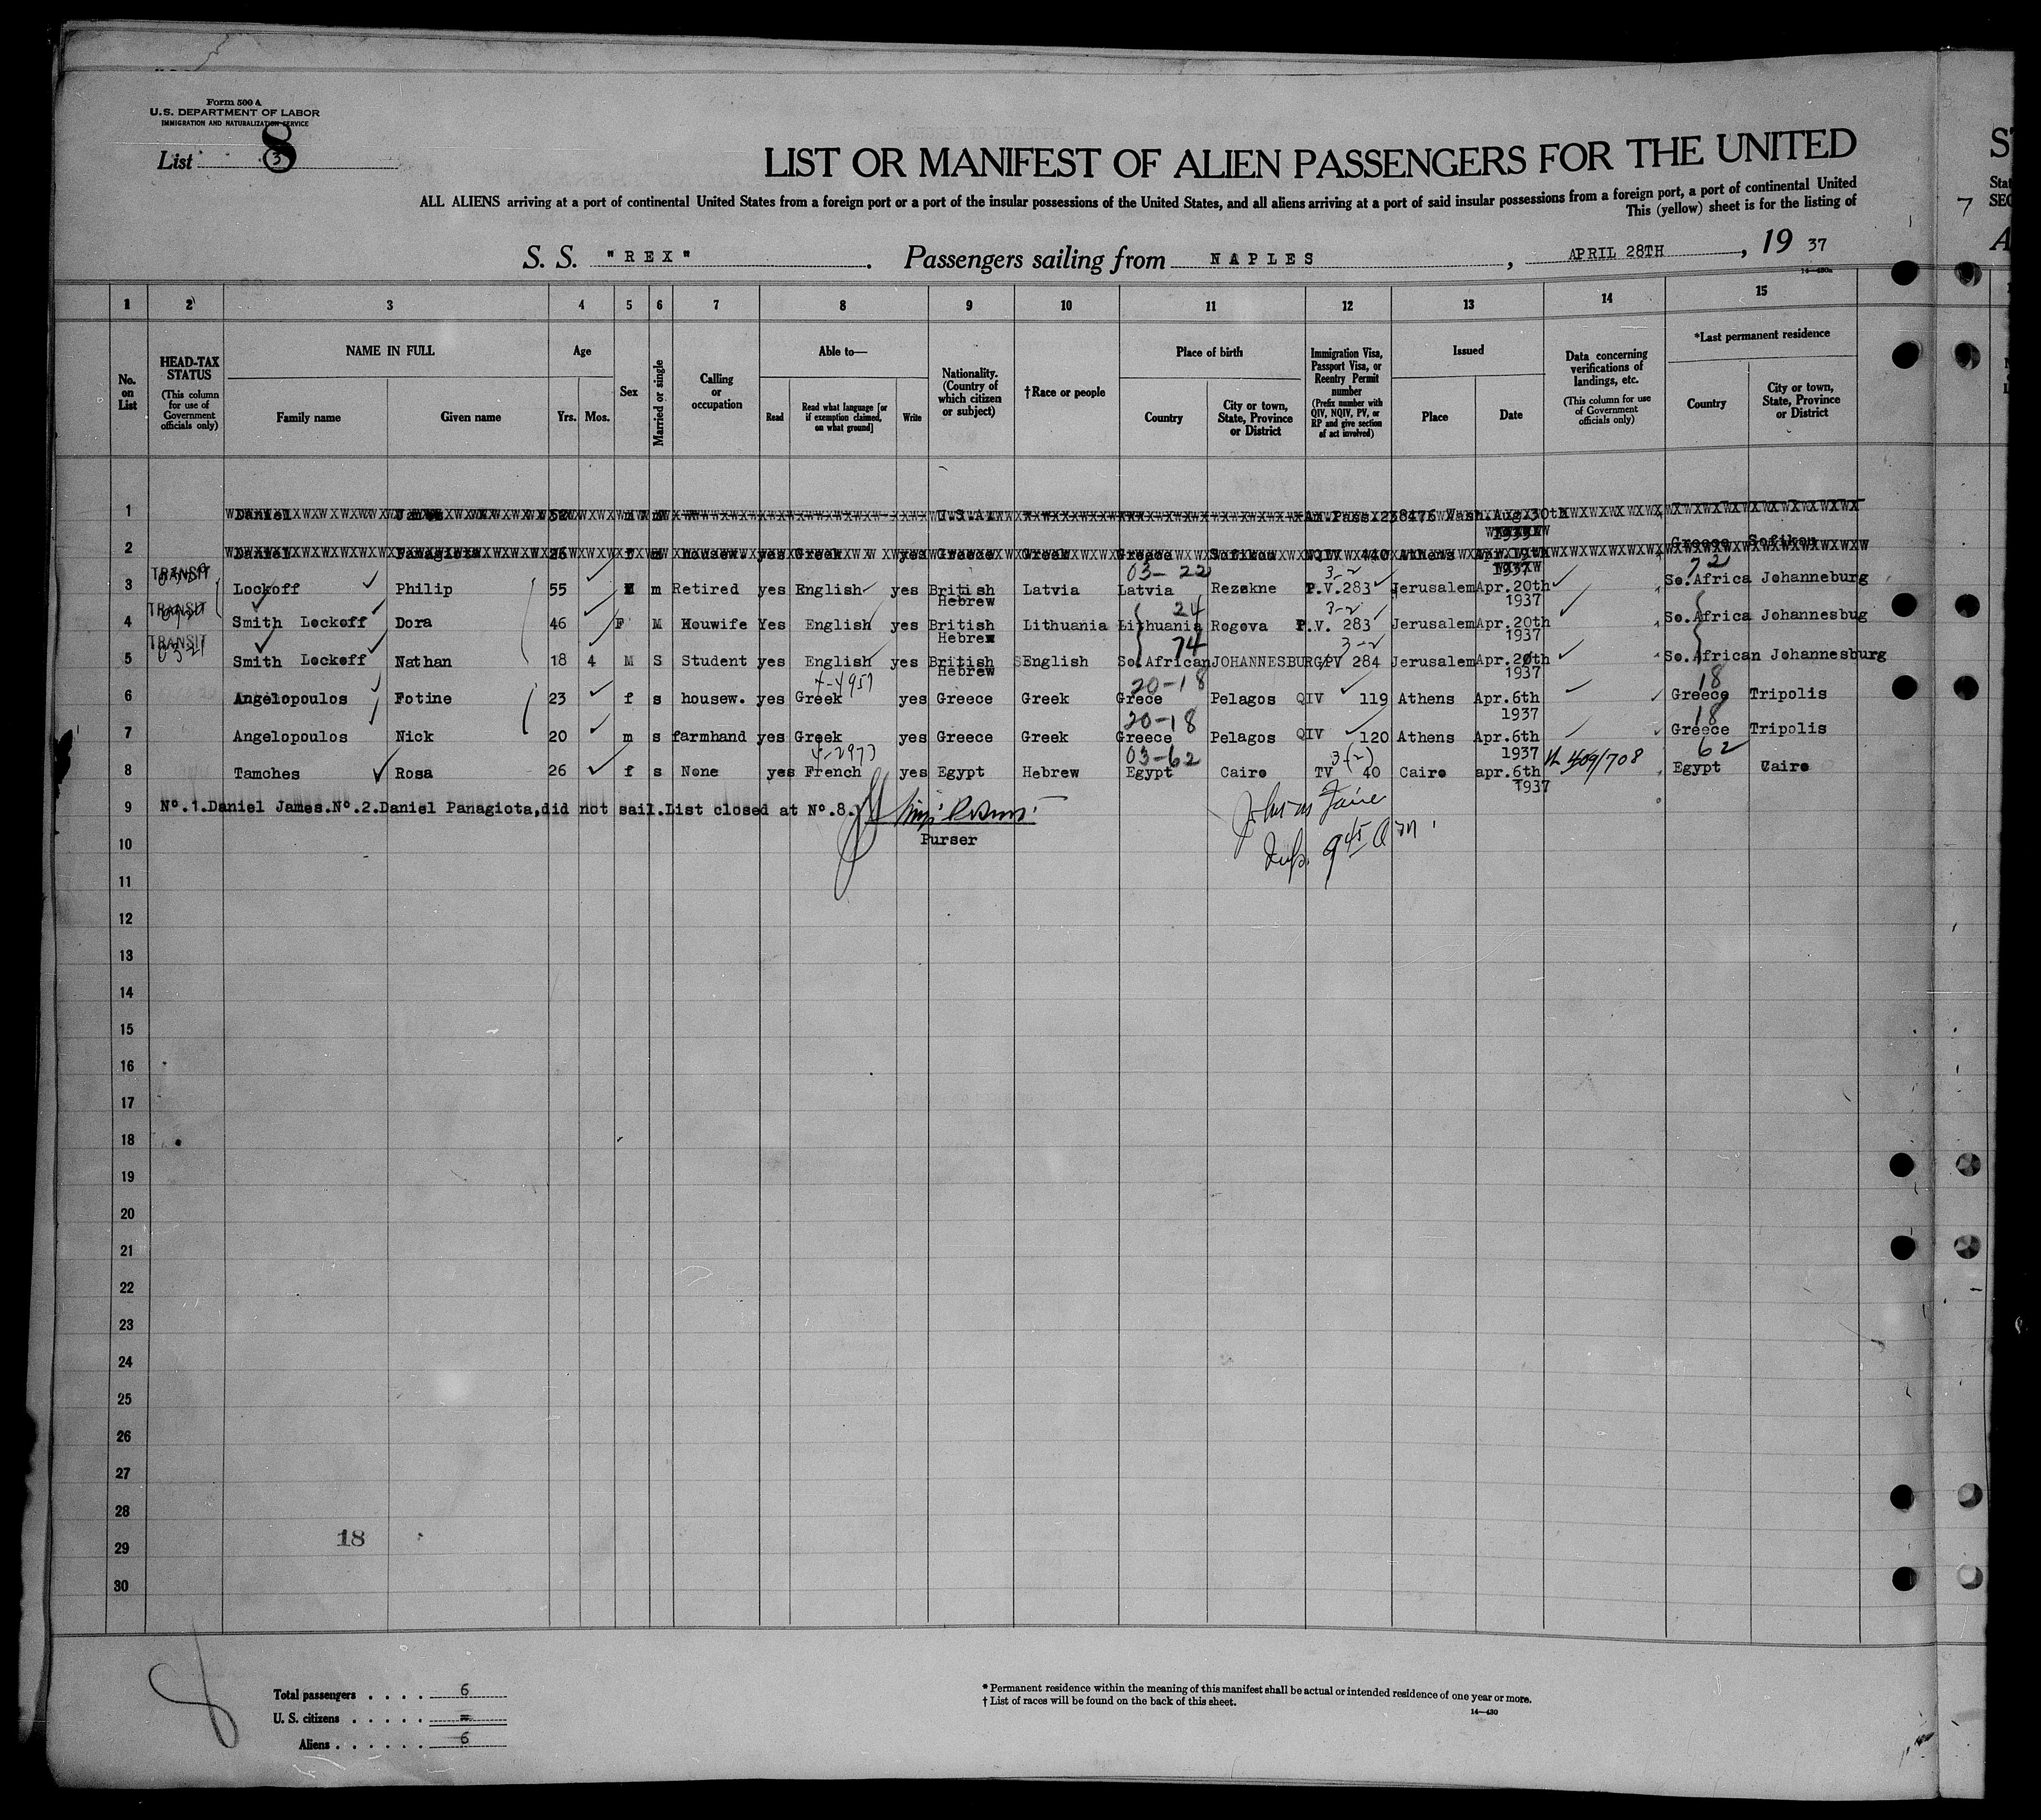 Form 500 A
U.S. DEPARTMENT OF LABOR
IMMIGRATION AND NATURALIZATION SERVICE
List 3 8
LIST OR MANIFEST OF ALIEN PASSENGERS FOR THE UNITED
ALL ALIENS arriving at a port of continental United States from a foreign port or a port of the insular possessions of the United States, and all aliens arriving at a port of said insular possessions from a foreign port, a port of continental United
This (yellow) sheet is for the listing of
S. S. "REX". Passengers sailing from NAPLES, APRIL 28TH, 19 37
1 2 3 4 5 6 7 8 9 10 11 12 13 14 15
No. on List
HEAD-TAX STATUS (This column for use of Government officials only)
NAME IN FULL
Family name Given name
Age
Yrs. Mos.
Sex
Married or single
Calling or occupation
Able to—
Read Read what language [or if exemption claimed, on what ground] Write
Nationality. (Country of which citizen or subject)
†Race or people
Place of birth
Country City or town, State, Province or District
Immigration Visa, Passport Visa, or Reentry Permit number (Prefix number with QIV, NQIV, PV, or RP and give section of act involved)
Issued
Place Date
Data concerning verifications of landings, etc. (This column for use of Government officials only)
*Last permanent residence
Country City or town, State, Province or District
1 Daniel James 52 m m U.S.A. Am.Pass.238476 Wash.Aug.30th
2 Daniel Panagiota f m housew. yes Greek yes Greece Greek Greece Sofikou NQIV 440 Athens Apr.19th 1937 Greece Sofikou
03-22 3-2 72
3 TRANSIT Lockoff Philip 55 M m Retired yes English yes British Hebrew Latvia Latvia Rezekne P.V.283 Jerusalem Apr.20th 1937 So.Africa Johanneburg
24 3-2
4 TRANSIT Smith Lockoff Dora 46 F M Houwife Yes English yes British Hebrew Lithuania Lithuania Rogova P.V. 283 Jerusalem Apr.20th 1937 So.Africa Johannesbug
74 3-2
5 TRANSIT Smith Lockoff Nathan 18 4 M S Student yes English yes British Hebrew English So.African JOHANNESBURG PV 284 Jerusalem Apr.20th 1937 So.African Johannesburg
4-4957 20-18 18
6 Angelopoulos Fotine 23 f s housew. yes Greek yes Greece Greek Grece Pelagos QIV 119 Athens Apr.6th 1937 Greece Tripolis
20-18 18
7 Angelopoulos Nick 20 m s farmhand yes Greek yes Greece Greek Greece Pelagos QIV 120 Athens Apr.6th 1937 Greece Tripolis
4-2973 03-62 3-(2) 62
8 Tamches Rosa 26 f s None yes French yes Egypt Hebrew Egypt Cairo TV 40 Cairo apr.6th 1937 Egypt Cairo
9 No.1.Daniel James.No.2.Daniel Panagiota,did not sail.List closed at No.8.
Purser
9 45 am
10
11
12
13
14
15
16
17
18
19
20
21
22
23
24
25
26
27
28
29
30
18
Total passengers . . . . 6
U. S. citizens . . . . . =
Aliens . . . . . . 6
* Permanent residence within the meaning of this manifest shall be actual or intended residence of one year or more.
† List of races will be found on the back of this sheet.
14—430
7